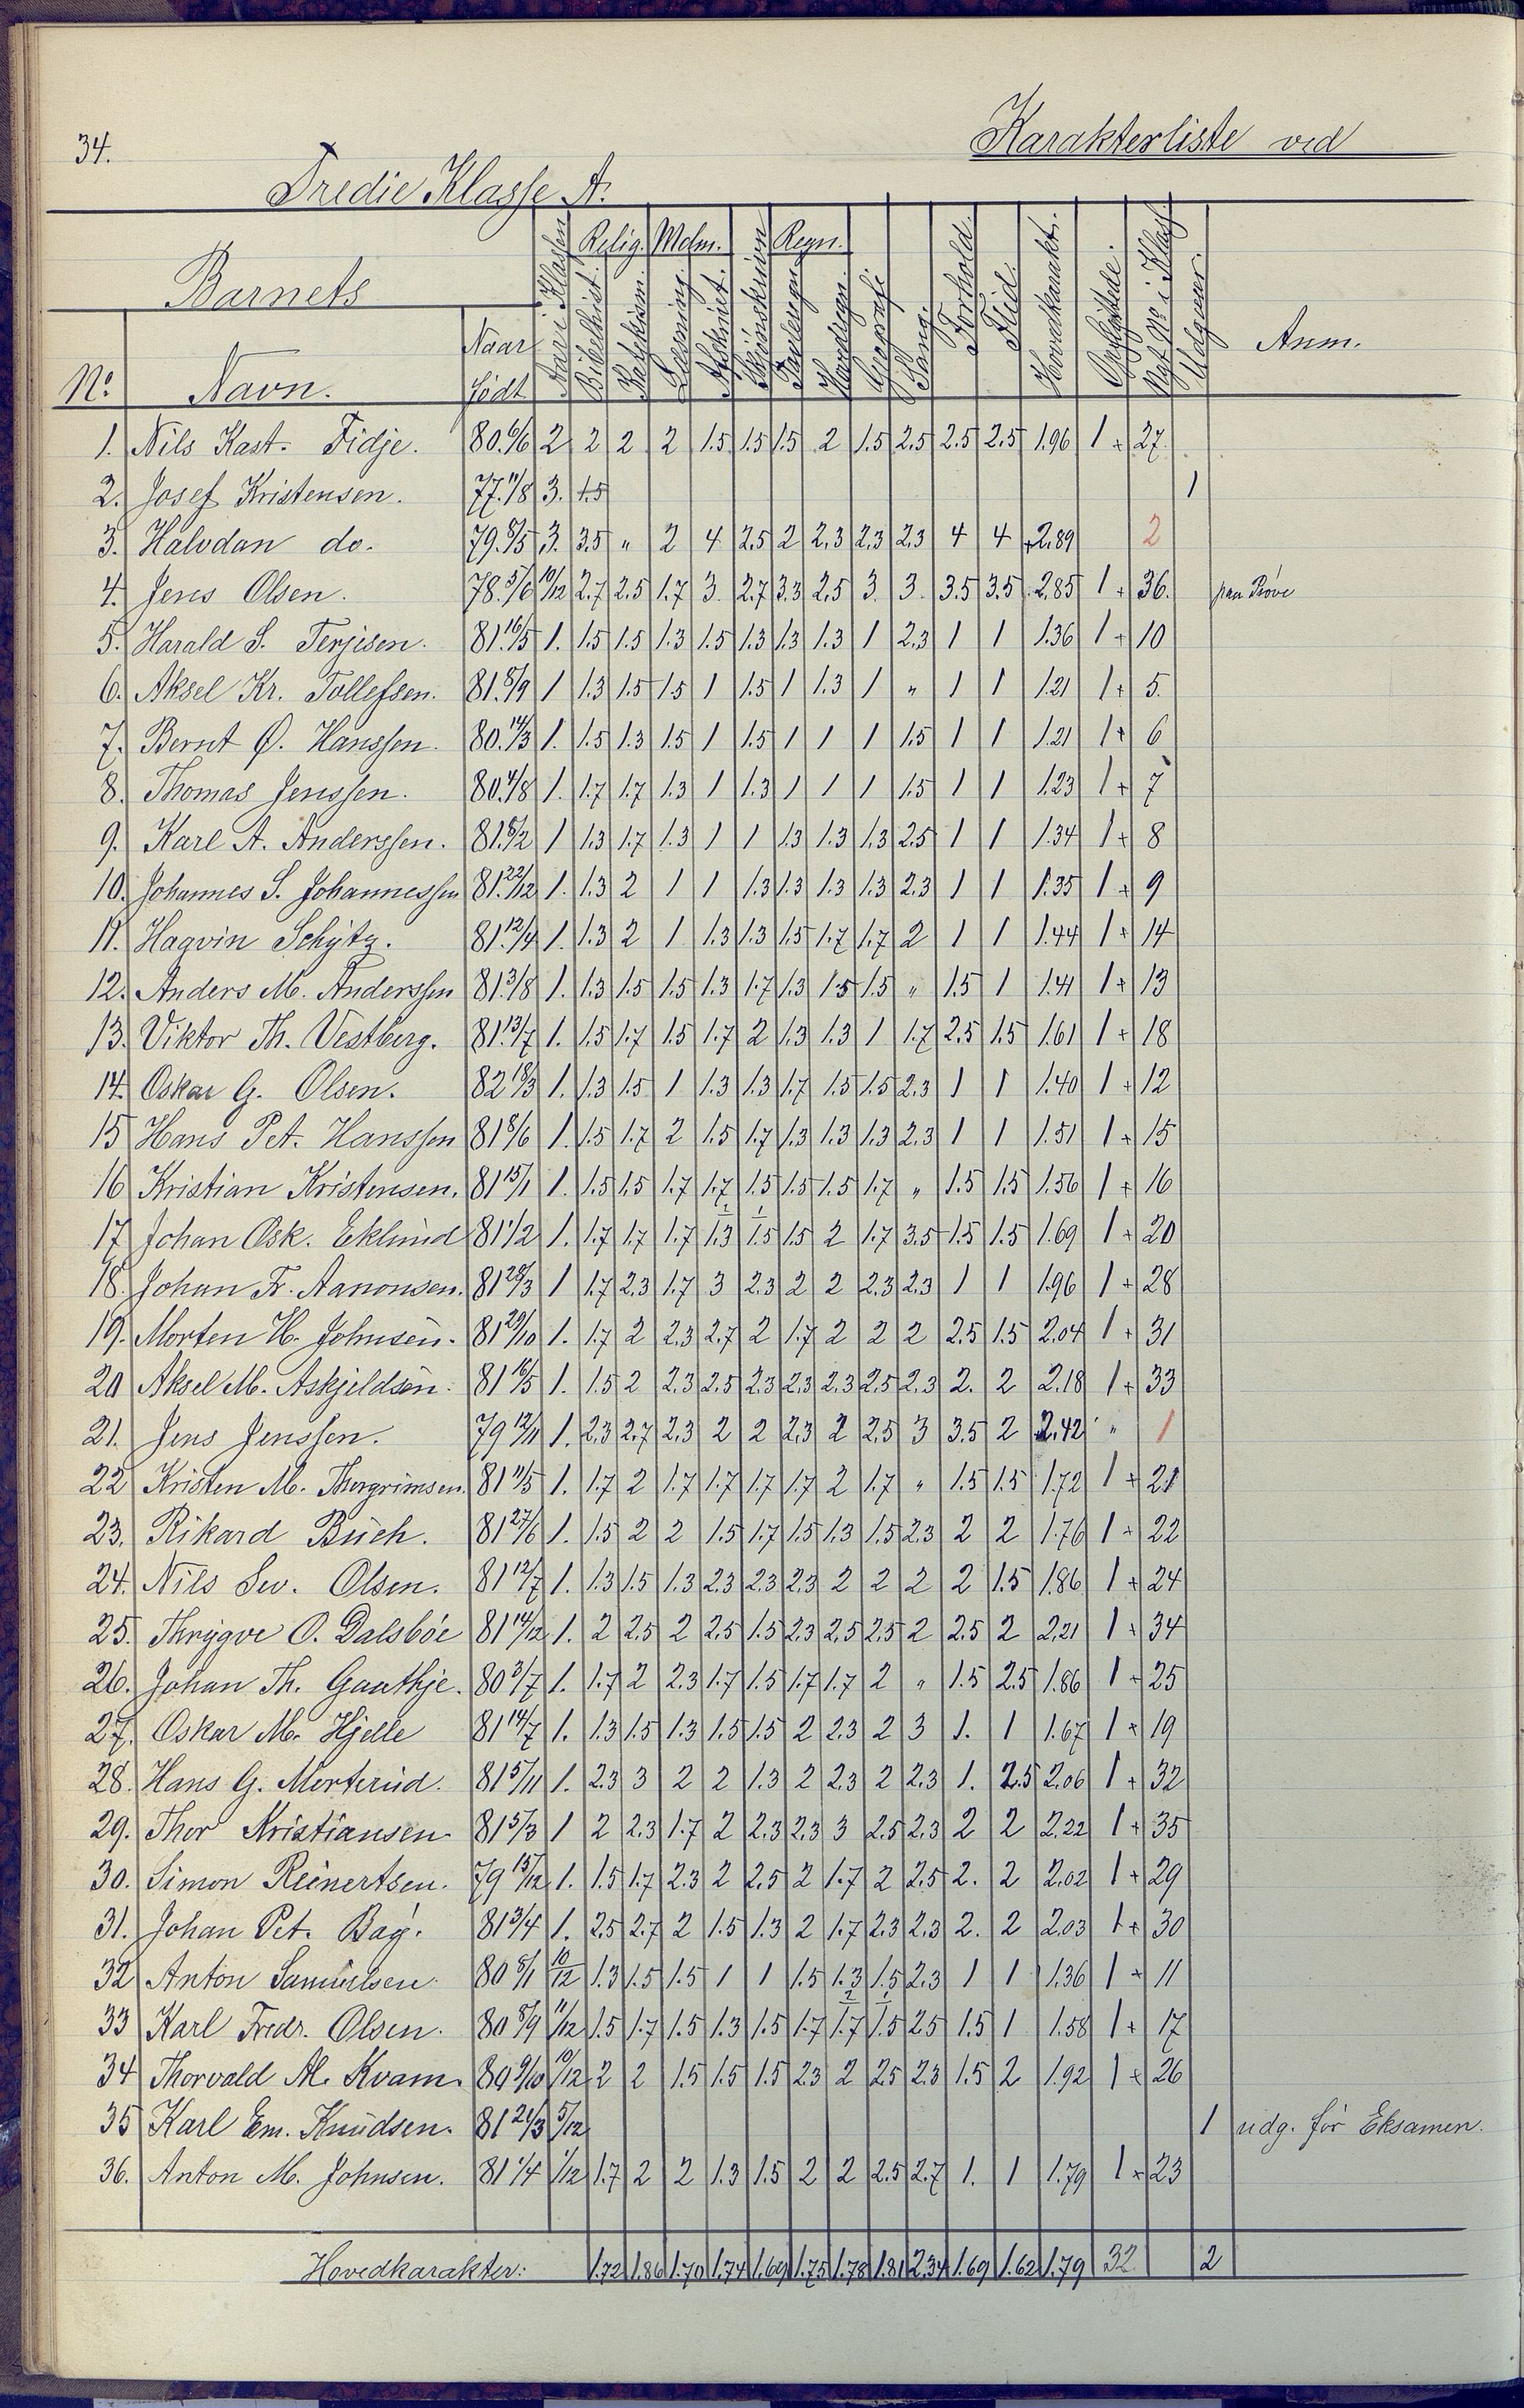 34.
Karakterliste ved
Tredie Klasse A.
Barnets
Nº
Navn.
Naar
født
Aar i Klassen
Relig.
Bibelhist.
Katekism.
Mdm.
Læsning.
Afskrivt.
Skjønskrivn
Regn.
Tavleregn.
Hovdregn.
Geografi
Sang.
Forhold.
Flid.
Hovedkarakt.
Opflyttede.
Nyt Nº i Klass.
Udgaar.
Anm.
1. Nils Kast. Fidje. 80. 6/6 2 2 2 2 1.5 1.5 1.5 2 1.5 2.5 2.5 2.5 1.96 1 + 27.
2. Josef Kristensen. 77. 11/8 3. 1.5 1
3. Halvdan do. 79. 8/5 3. 3.5 " 2 4 2.5 2 2.3 2.3 2.3 4 4 2.89 2
4. Jens Olsen. 78. 5/6 10/12 2.7 2.5 1.7 3 2.7 3.3 2.5 3. 3. 3.5 3.5 2.85 1 + 36. paa Prøve
5. Harald S. Terjesen. 81 16/5 1. 1.5 1.5 1.3 1.5 1.3 1.3 1.3 1 2.3 1 1 1.36 1 + 10
6. Aksel Kr. Tollefsen. 81. 8/9 1 1.3 1.5 1.5 1 1.5 1 1.3 1 " 1 1 1.21 1 + 5.
7. Bernt Ø. Hanssen. 80. 14/3 1. 1.5 1.3 1.5 1 1.5 1 1 1 1.5 1 1 1.21 1 + 6
8. Thomas Jenssen. 80. 4/8 1. 1.7 1.7 1.3 1 1.3 1 1 1 1.5 1 1 1.23 1 + 7
9. Karl A. Anderssen. 81. 8/2 1 1.3 1.7 1.3 1 1 1.3 1.3 1.3 2.5 1 1 1.34 1 + 8
10. Johannes S. Johannessen 81. 22/12 1. 1.3 2 1 1 1.3 1.3 1.3 1.3 2.3 1 1 1.35 1 + 9
11. Hagvin Schytz. 81. 12/4 1. 1.3 2 1 1.3 1.3 1.5 1.7 1.7 2 1 1 1.44 1 + 14
12. Anders M. Anderssen 81. 3/8 1. 1.3 1.5 1.5 1.3 1.7 1.3 1.5 1.5 " 1.5 1 1.41 1 + 13
13. Viktor Th. Vestberg. 81. 13/7 1. 1.5 1.7 1.5 1.7 2 1.3 1.3 1 1.7 2.5 1.5 1.61 1 + 18
14. Oskar G. Olsen. 82 18/3 1. 1.3 1.5 1 1.3 1.3 1.7 1.5 1.5 2.3 1 1 1.40 1 + 12
15 Hans Pet. Hanssen 81 8/6 1. 1.5 1.7 2 1.5 1.7 1.3 1.3 1.3 2.3 1 1 1.51 1 + 15
16 Kristian Kristensen. 81 15/1 1. 1.5 1.5 1.7 1.7 1.5 1.5 1.5 1.7 " 1.5 1.5 1.56 1 + 16
17 Johan Osk. Eklund 81 1/2 1. 1.7 1.7 1.7 1.3 1.5 1.5 2 1.7 3.5 1.5 1.5 1.69 1 + 20
18. Johan Fr. Aanonsen. 81 28/3 1 1.7 2.3 1.7 3 2.3 2 2 2.3 2.3 1 1 1.96 1 + 28
19. Morten H. Johnsen. 81 29/10 1. 1.7 2 2.3 2.7 2 1.7 2 2 2 2.5 1.5 2.04 1 + 31
20 Aksel M. Askjeldsen. 81 16/5 1. 1.5 2 2.3 2.5 2.3 2.3 2.3 2.5 2.3 2. 2 2.18 1 + 33
21. Jens Jenssen. 79 12/11 1. 2.3 2.7 2.3 2 2 2.3 2 2.5 3 3.5 2 2.42 " 1
22 Kristen M. Thorgrimsen. 81 11/5 1. 1.7 2 1.7 1.7 1.7 1.7 2 1.7 " 1.5 1.5 1.72 1 + 21
23. Rikard Buch. 81 27/6 1. 1.5 2 2 1.5 1.7 1.5 1.3 1.5 2.3 2 2 1.76 1 + 22
24. Nils Sev. Olsen. 81 12/7 1. 1.3 1.5 1.3 2.3 2.3 2.3 2 2 2 2 1.5 1.86 1 + 24
25. Thrygve O. Dalsbøe 81 14/12 1. 2 2.5 2 2.5 1.5 2.3 2.5 2.5 2 2.5 2 2.21 1 + 34
26. Johan Th. Gauthje. 80 3/7 1. 1.7 2 2.3 1.7 1.5 1.7 1.7 2 " 1.5 2.5 1.86 1 + 25
27. Oskar M. Hjelle 81 14/7 1. 1.3 1.5 1.3 1.5 1.5 2 2.3 2 3 1. 1 1.67 1 + 19
28. Hans G. Morterud. 81 5/11 1. 2.3 3 2 2 1.3 2 2.3 2 2.3 1. 2.5 2.06 1 + 32
29. Thor Kristiansen 81 5/3 1 2 2.3 1.7 2 2.3 2.3 3 2.5 2.3 2 2 2.22 1 + 35
30. Simon Reinertsen. 79 15/12 1. 1.5 1.7 2.3 2 2.5 2 1.7 2 2.5 2. 2 2.02 1 + 29
31. Johan Pet. Bag. 81 3/4 1. 2.5 2.7 2 1.5 1.3 2 1.7 2.3 2.3 2. 2 2.03 1 + 30
32 Anton Samuelsen. 80 8/1 10/12 1.3 1.5 1.5 1 1 1.5 1.3 1.5 2.3 1 1 1.36 1 + 11
33 Karl Fredr. Olsen. 80 8/9 11/12 1.5 1.7 1.5 1.3 1.5 1.7 1.7 1.5 2.5 1.5 1 1.58 1 + 17
34 Thorvald M. Kvam. 80 9/10 10/12 2 2 1.5 1.5 1.5 2.3 2 2.5 2.3 1.5 2 1.92 1 + 26
35 Karl Em. Knudsen. 81 21/3 5/12 1 udg. før Eksamen.
36. Anton M. Johnsen. 81 1/4 1/12 1.7 2 2 1.3 1.5 2 2 2.5 2.7 1. 1 1.79 1 + 23
Hovedkarakter: 1.72 1.86 1.70 1.74 1.69 1.75 1.78 1.81 2.34 1.69 1.62 1.79 32 2